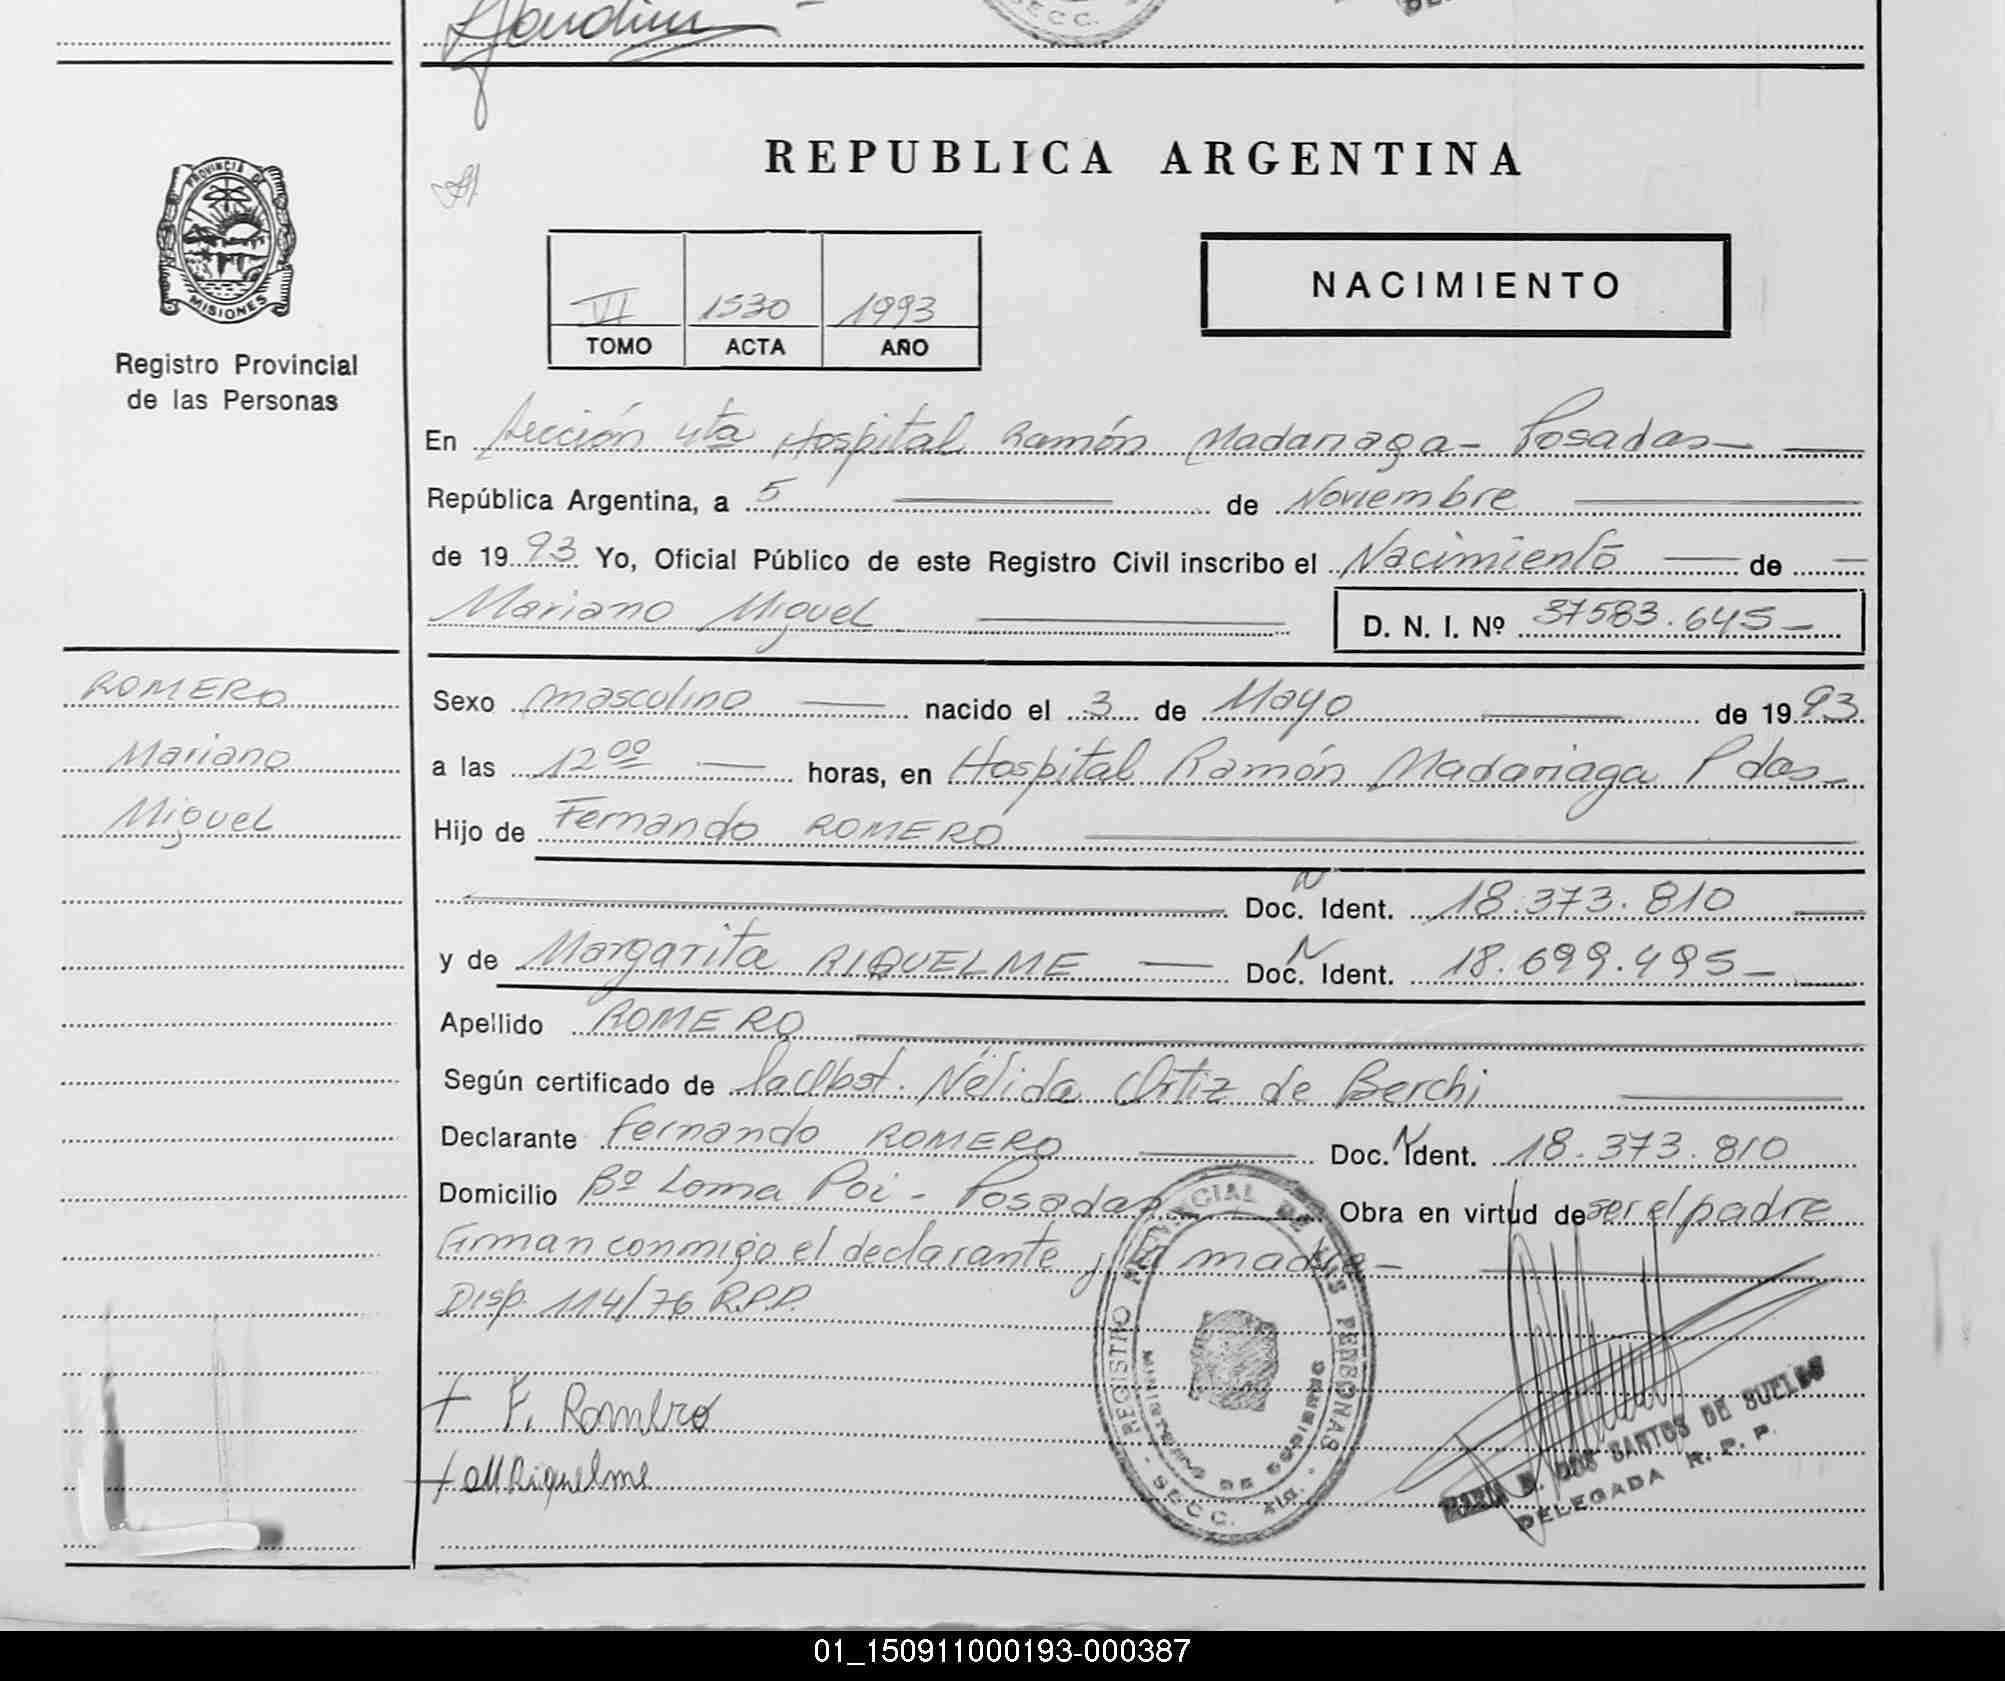 SECC.
PROVINCIA DE
MISIONES
Registro Provincial
de las Personas
REPUBLICA ARGENTINA
VI 1530 1993
TOMO ACTA AÑO
NACIMIENTO
En Sección 4ta Hospital Ramón Madariaga - Posadas -
República Argentina, a 5 de Noviembre
de 1993 Yo, Oficial Público de este Registro Civil inscribo el Nacimiento de
Mariano Miguel
D. N. I. Nº 37583.645 -
ROMERO
Mariano
Miguel
Sexo masculino nacido el 3 de Mayo de 1993
a las 12 00 horas, en Hospital Ramón Madariaga Pdas -
Hijo de Fernando ROMERO
N
Doc. Ident. 18.373.810
y de Margarita RIQUELME Doc. N Ident. 18.699.495 -
Apellido ROMERO
Según certificado de Nélida Ortiz de Berchi
Declarante Fernando ROMERO Doc. N Ident. 18.373.810
Domicilio Bº Loma Poi - Posadas Obra en virtud de ser el padre
Firman conmigo el declarante y la madre -
Disp. 114/76 R.P.P.
+ F. Romero
+ M Riquelme
REGISTRO PROVINCIAL DE LAS PERSONAS
MINISTERIO DE GOBIERNO
SECC. 4ta.
MARIA DOS SANTOS DE SUELDO
DELEGADA R. P. P.
01_150911000193-000387